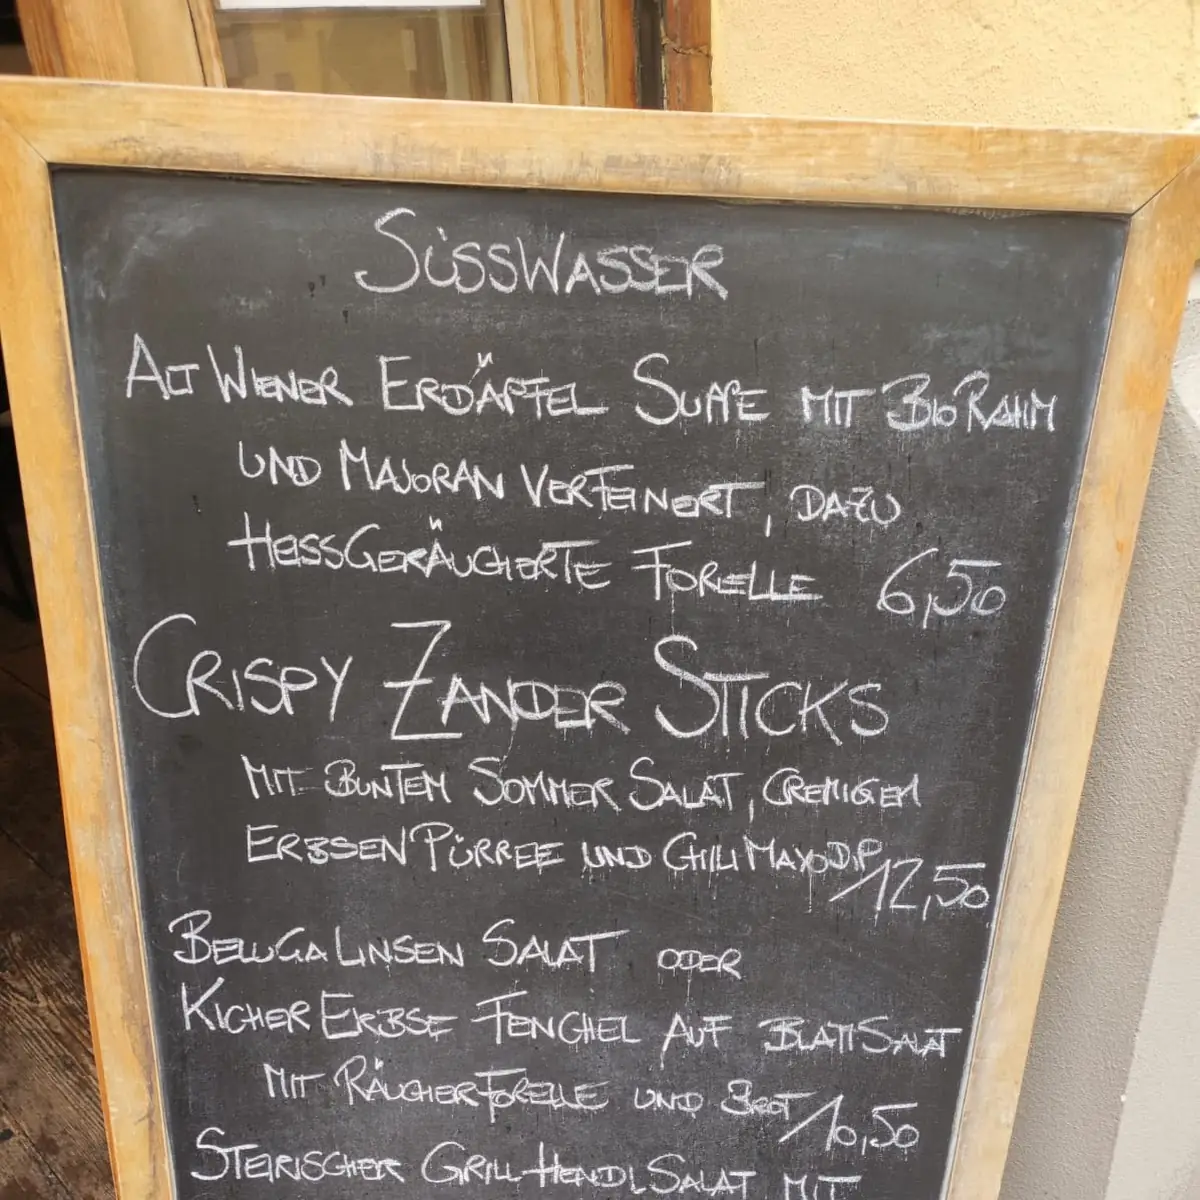 SÜSSWASSER
ALT WIENER ERDÄPFEL SUPPE MIT BIO RAHM
UND MAJORAN VERFEINERT, DAZU
HEISSGERÄUCHERTE FORELLE 6,50
CRISPY ZANDER STICKS
MIT BUNTEM SOMMER SALAT, CREMIGEM
ERBSEN PÜRREE UND CHILI MAYO DIP
12,50
BELUGA LINSEN SALAT ODER
KICHER ERBSE FENCHEL AUF BLATTSALAT
MIT RÄUCHERFORELLE UND BROT 10,50
STEIRISCHER GRILL HENDL SALAT MIT